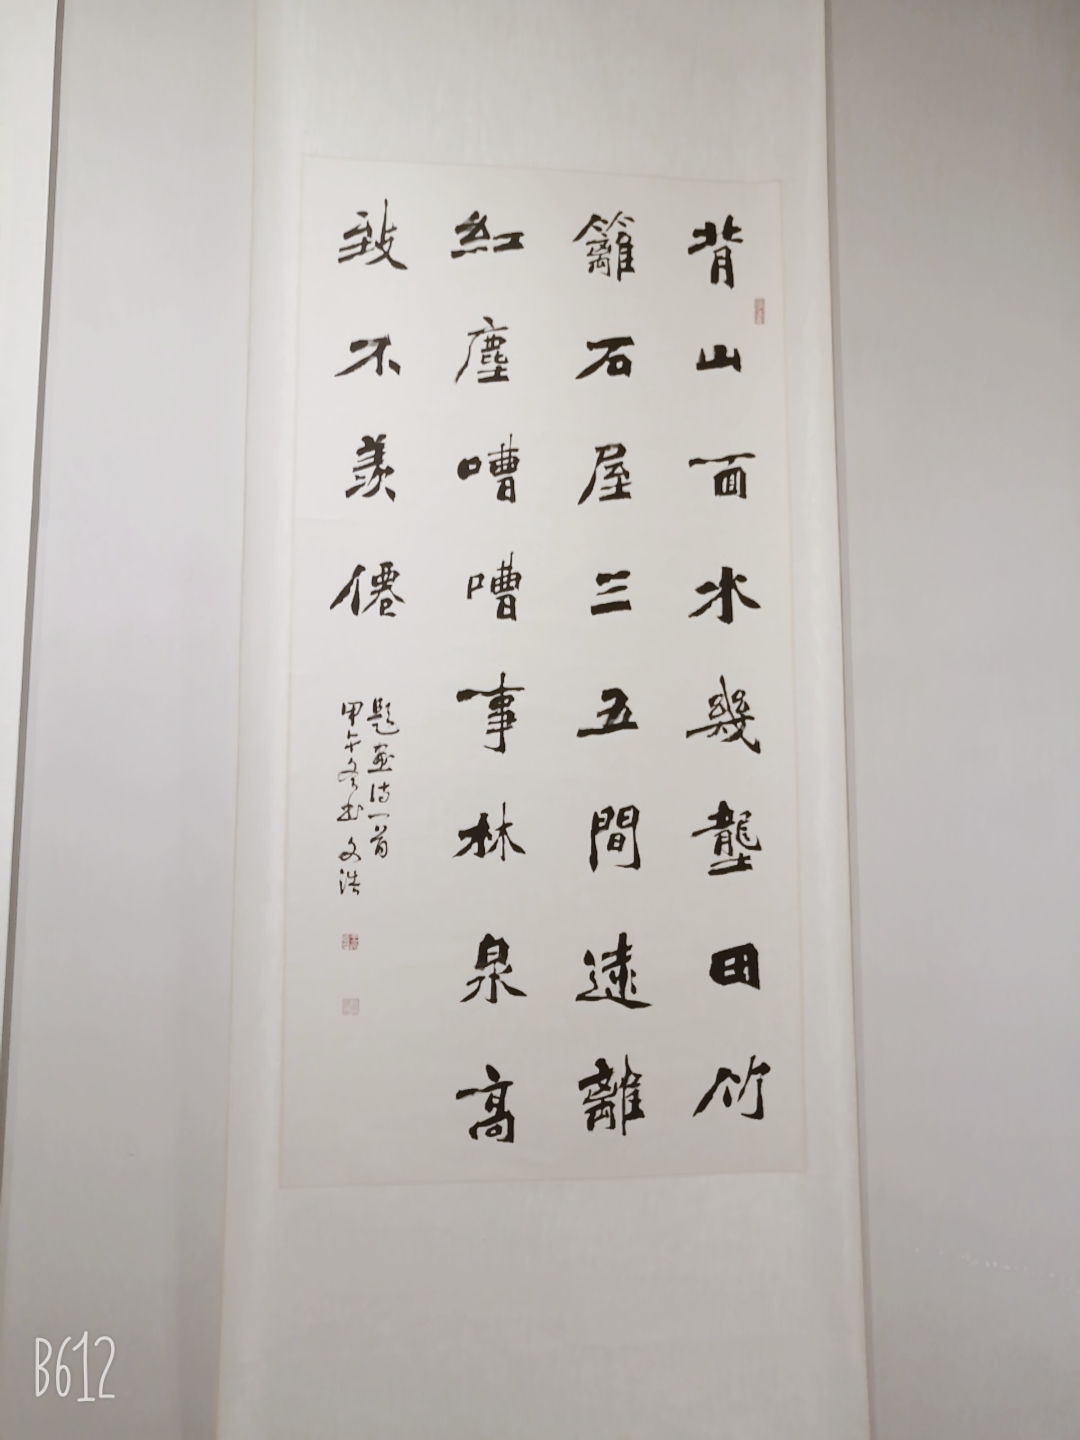 背山面水幾壟田竹
籬石屋三五間遠離
紅塵嘈嘈事林泉高
致不羨僊
題畫詩一首
甲午冬書文浩
B612